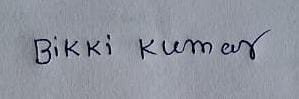 Bikki Kumar